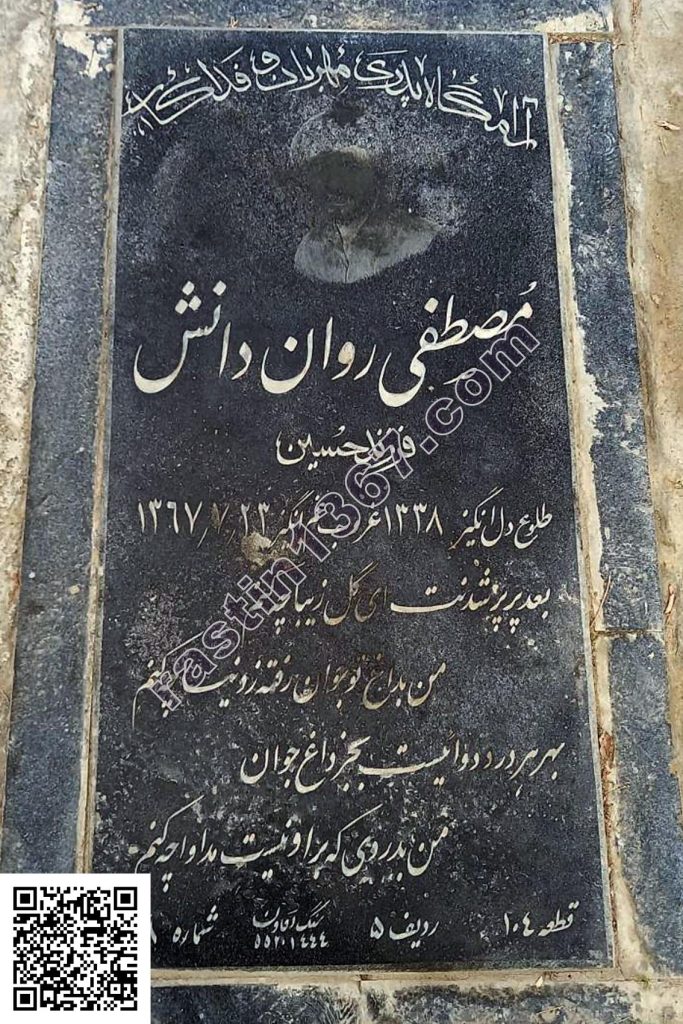 آرامگاه پدری مهربان و فداکار
مُصطفی روان دانش
فرزند حسین
طلوع دل انگیز ۱۳۳۸ غروب غم انگیز ۱۳۶۷/۷/۲۳
بعد پرپر شدنت ای گل زیبا چه
من بداغ تو جوان رفته ز دنیا چکنم
بهر هر درد دوائیست بجز داغ جوان
من بدردی که بر او نیست مداوا چه کنم
قطعه ۱۰۴ ردیف ۵ شماره ۸
۵۵۲۰۱۴۴۴
rastin1367.com